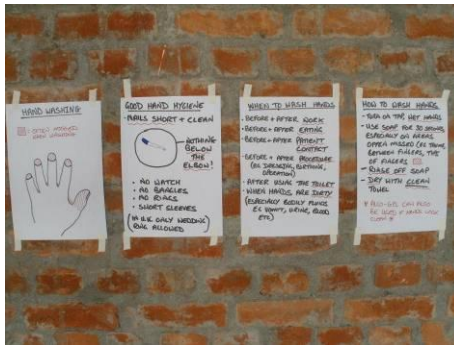 HAND WASHING
= OFTEN MISSED
WHEN WASHING
GOOD HAND HYGIENE
- NAILS SHORT + CLEAN
NOTHING
BELOW
THE
ELBOW!
• NO WATCH
• NO BANGLES
• NO RINGS
• SHORT SLEEVES
(IN U.K. ONLY WEDDING
RING ALLOWED)
WHEN TO WASH HANDS
- BEFORE + AFTER WORK
- BEFORE + AFTER EATING
- BEFORE + AFTER PATIENT
CONTACT
- BEFORE + AFTER PROCEDURE
(EG DRESSING, BIRTHING,
OPERATION)
- AFTER USING THE TOILET
- WHEN HANDS ARE DIRTY
(ESPECIALLY BODILY FLUIDS
EG VOMIT, URINE, BLOOD
ETC)
HOW TO WASH HANDS
- TURN ON TAP, WET HANDS
- USE SOAP FOR 30 SECONDS
ESPECIALLY ON AREAS
OFTEN MISSED (EG THUMB,
BETWEEN FINGERS, TIPS
OF FINGERS
- RINSE OFF SOAP
- DRY WITH CLEAN
TOWEL
* ALCO-GEL CAN ALSO
BE USED IF HANDS LOOK
CLEAN *